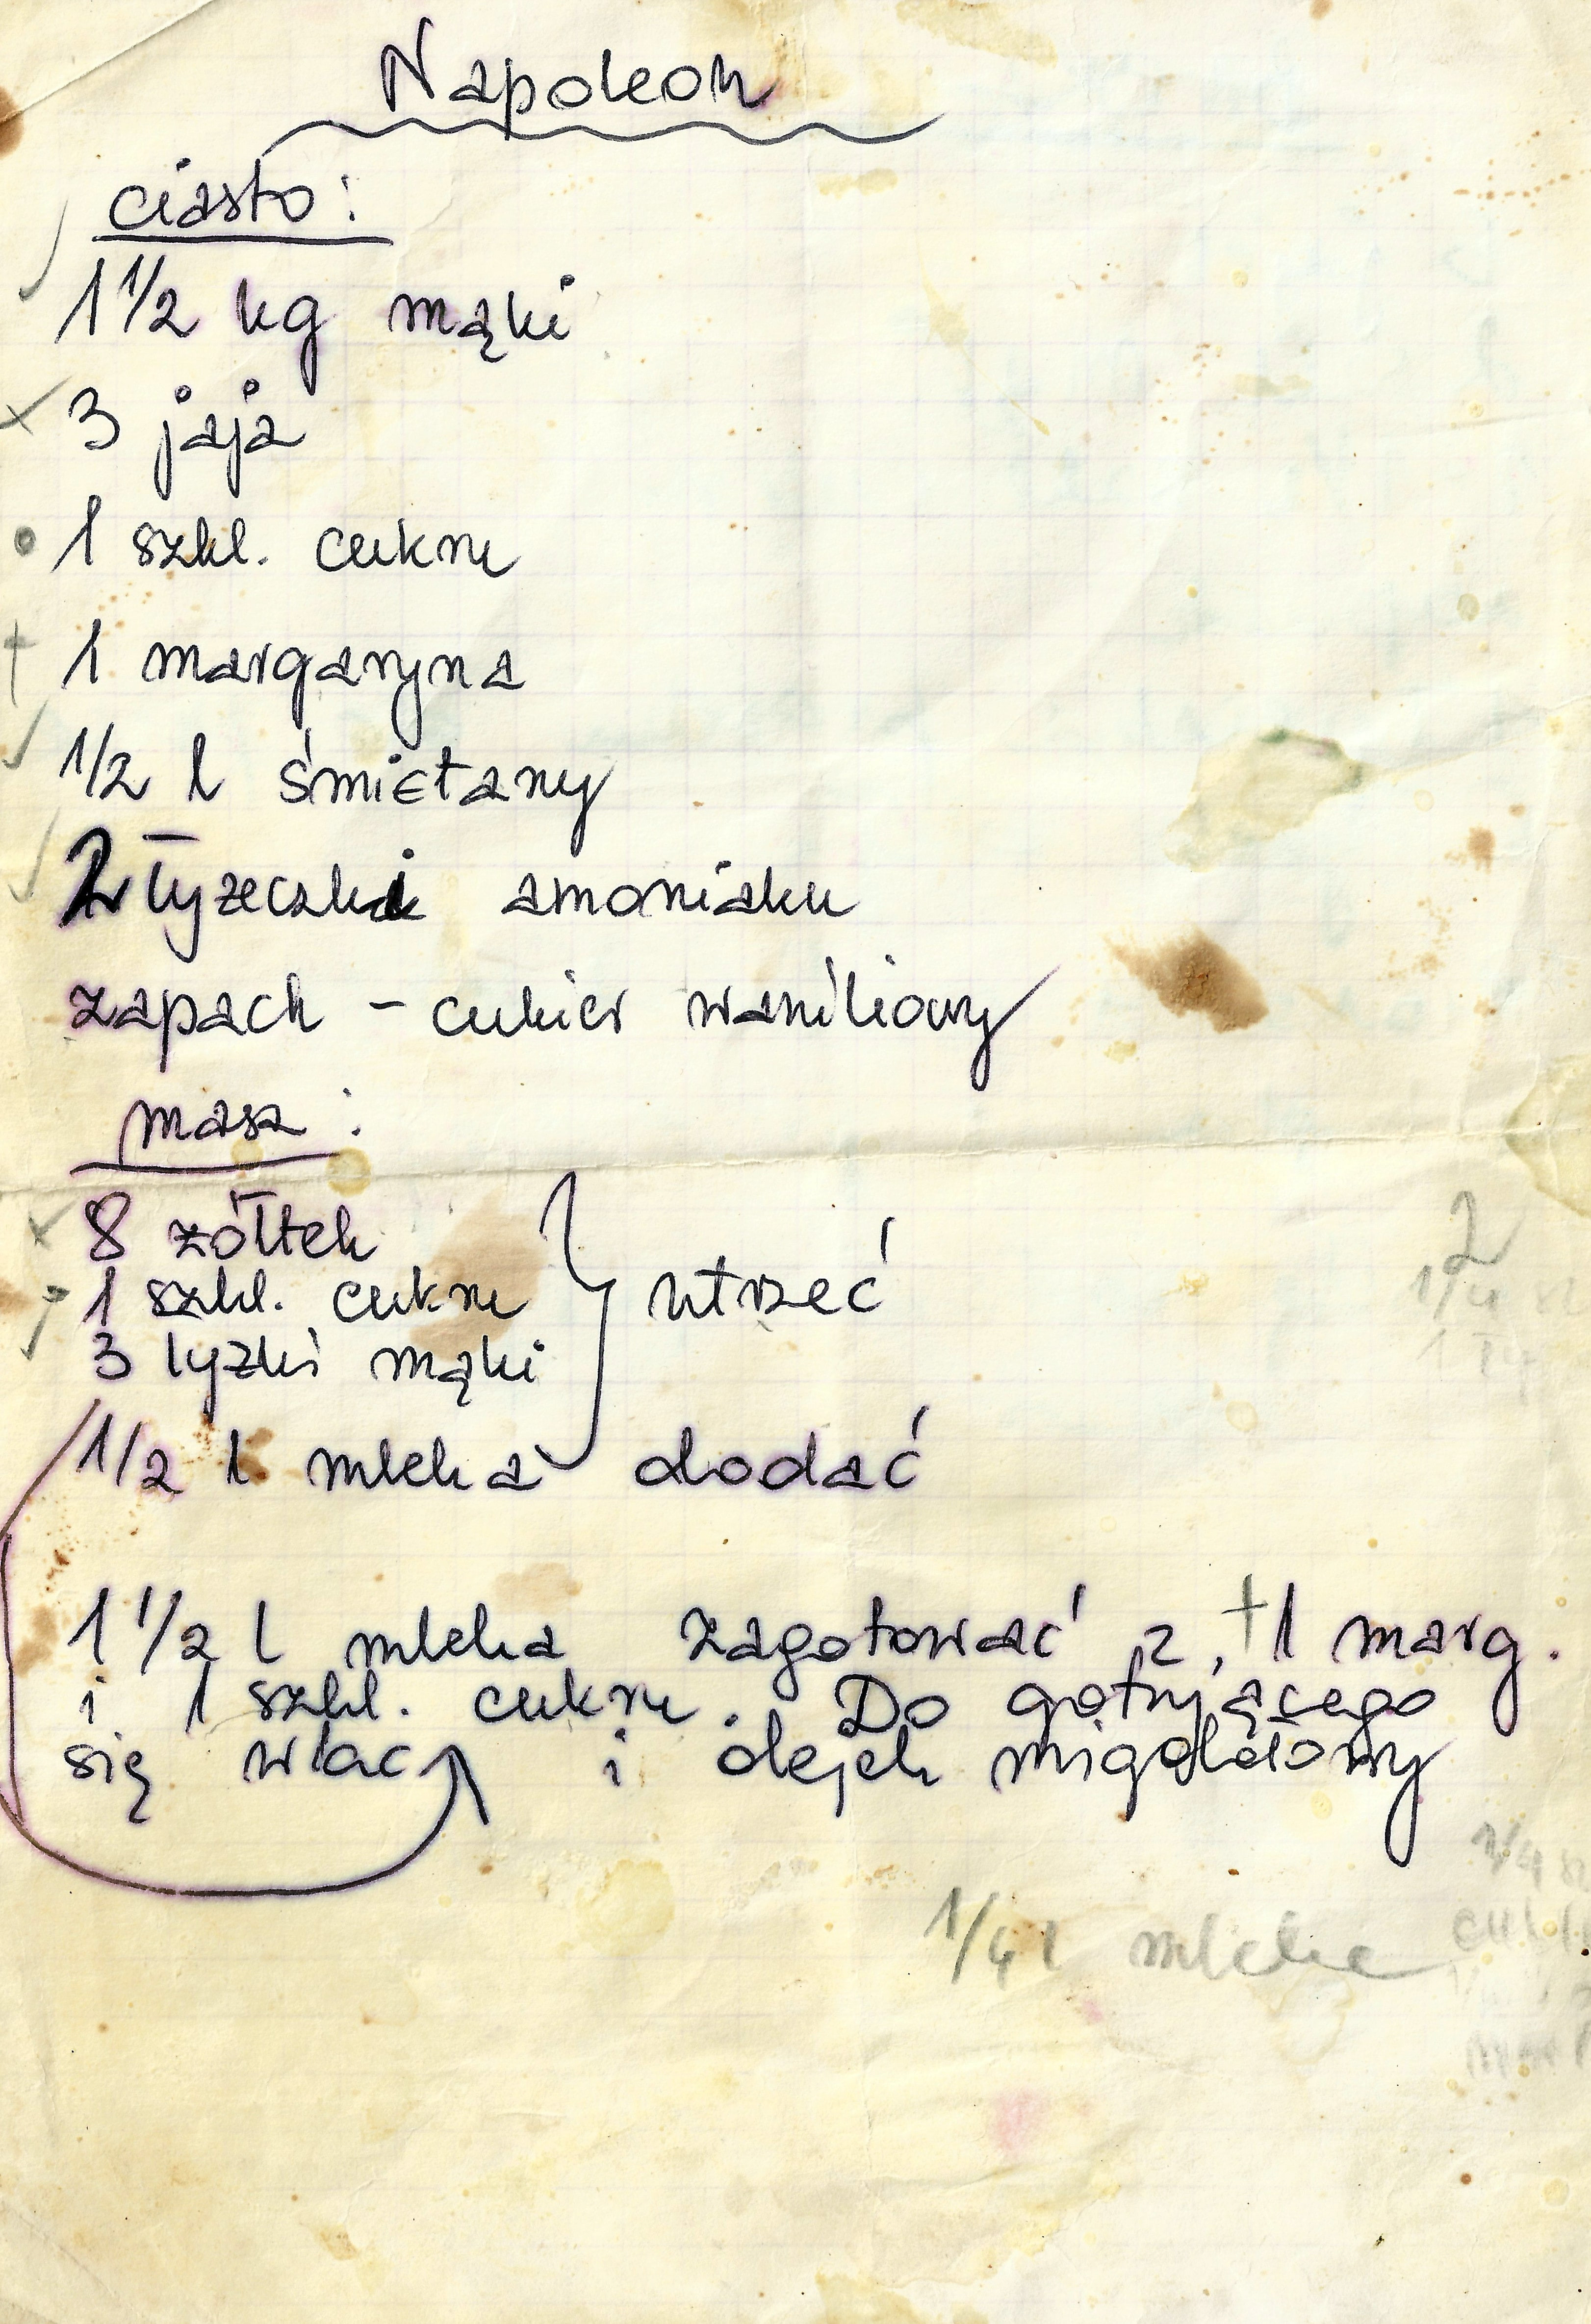 Napoleon
ciasto:
1 1/2 kg mąki
3 jaja
1 szkl. cukru
1 margaryna
1/2 l śmietany
2 łyżeczki amoniaku
zapach - cukier waniliowy
masa:
8 żółtek
1 szkl. cukru } utrzeć
3 łyżki mąki
1/2 l mleka dodać
1 1/2 l mleka zagotować z 1 marg.
i 1 szkl. cukru. Do gotującego
się wlać i olejek migdałowy
2
1/4
1
1/4
1/4 l mleka